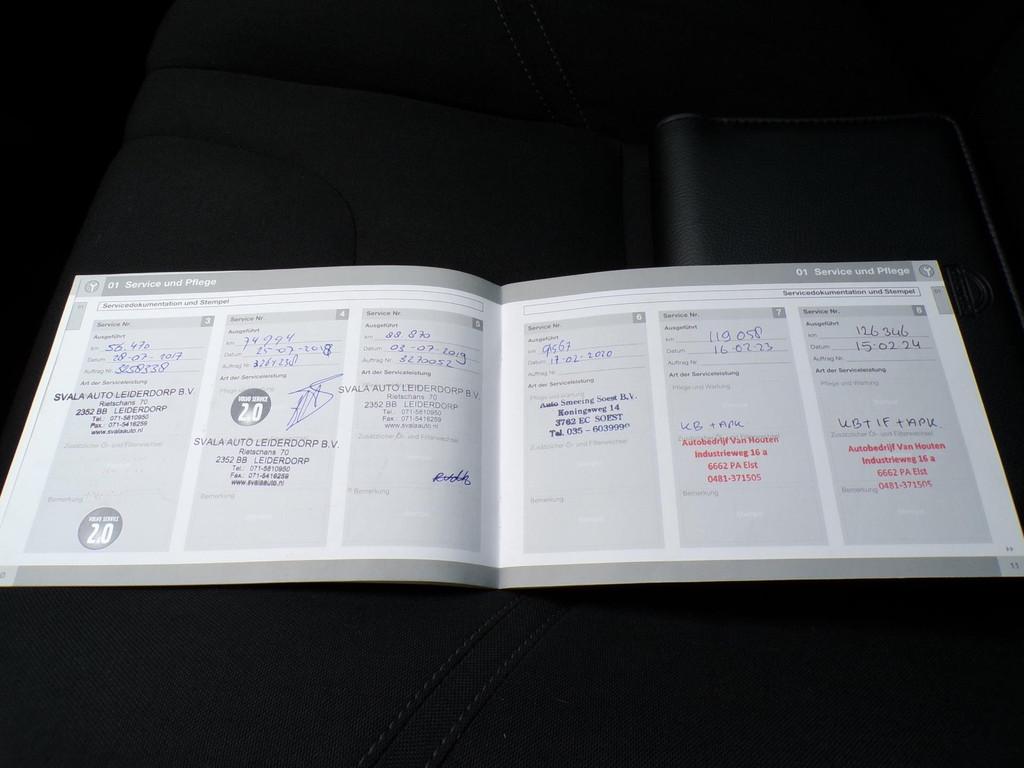 01 Service und Pflege
Servicedokumentation und Stempel
Service Nr. 3
Ausgeführt
km 55.470
Datum 28-07-2017
Auftrag Nr. 3258338
Art der Serviceleistung
SVALA AUTO LEIDERDORP B.V.
Rietschans 70
2352 BB LEIDERDORP
Tel.: 071-5810950
Fax.: 071-5416259
www.svalaauto.nl
Zusätzlicher Öl- und Filterwechsel
Bemerkung
VOLVO SERVICE
2.0
Service Nr. 4
Ausgeführt
km 74994
Datum 25-07-2018
Auftrag Nr.
Art der Serviceleistung
VOLVO SERVICE
2.0
SVALA AUTO LEIDERDORP B.V.
Rietschans 70
2352 BB LEIDERDORP
Tel.: 071-5810950
Fax.: 071-5416259
www.svalaauto.nl
Bemerkung
Service Nr. 5
Ausgeführt
km 88 870
Datum 03-07-2019
Auftrag Nr. 3270052
Art der Serviceleistung
SVALA AUTO LEIDERDORP B.V.
Rietschans 70
2352 BB LEIDERDORP
Tel.: 071-5810950
Fax.: 071-5416259
www.svalaauto.nl
Zusätzlicher Öl- und Filterwechsel
Bemerkung
01 Service und Pflege
Servicedokumentation und Stempel
Service Nr. 6
Ausgeführt
km 91567
Datum 17-02-2020
Auftrag Nr.
Art der Serviceleistung
Auto Smeeing Soest B.V.
Koningsweg 14
3762 EC SOEST
Tel. 035 - 6039990
Zusätzlicher Öl- und Filterwechsel
Bemerkung
Service Nr. 7
Ausgeführt
km 119 058
Datum 16-02-23
Auftrag Nr.
Art der Serviceleistung
Pflege und Wartung
KB + APK
Autobedrijf Van Houten
Industrieweg 16 a
6662 PA Elst
0481-371505
Bemerkung
Service Nr. 8
Ausgeführt
km 126 346
Datum 15-02-24
Auftrag Nr.
Art der Serviceleistung
Pflege und Wartung
KB + IF + APK
Zusätzlicher Öl- und Filterwechsel
Autobedrijf Van Houten
Industrieweg 16 a
6662 PA Elst
0481-371505
Bemerkung
11